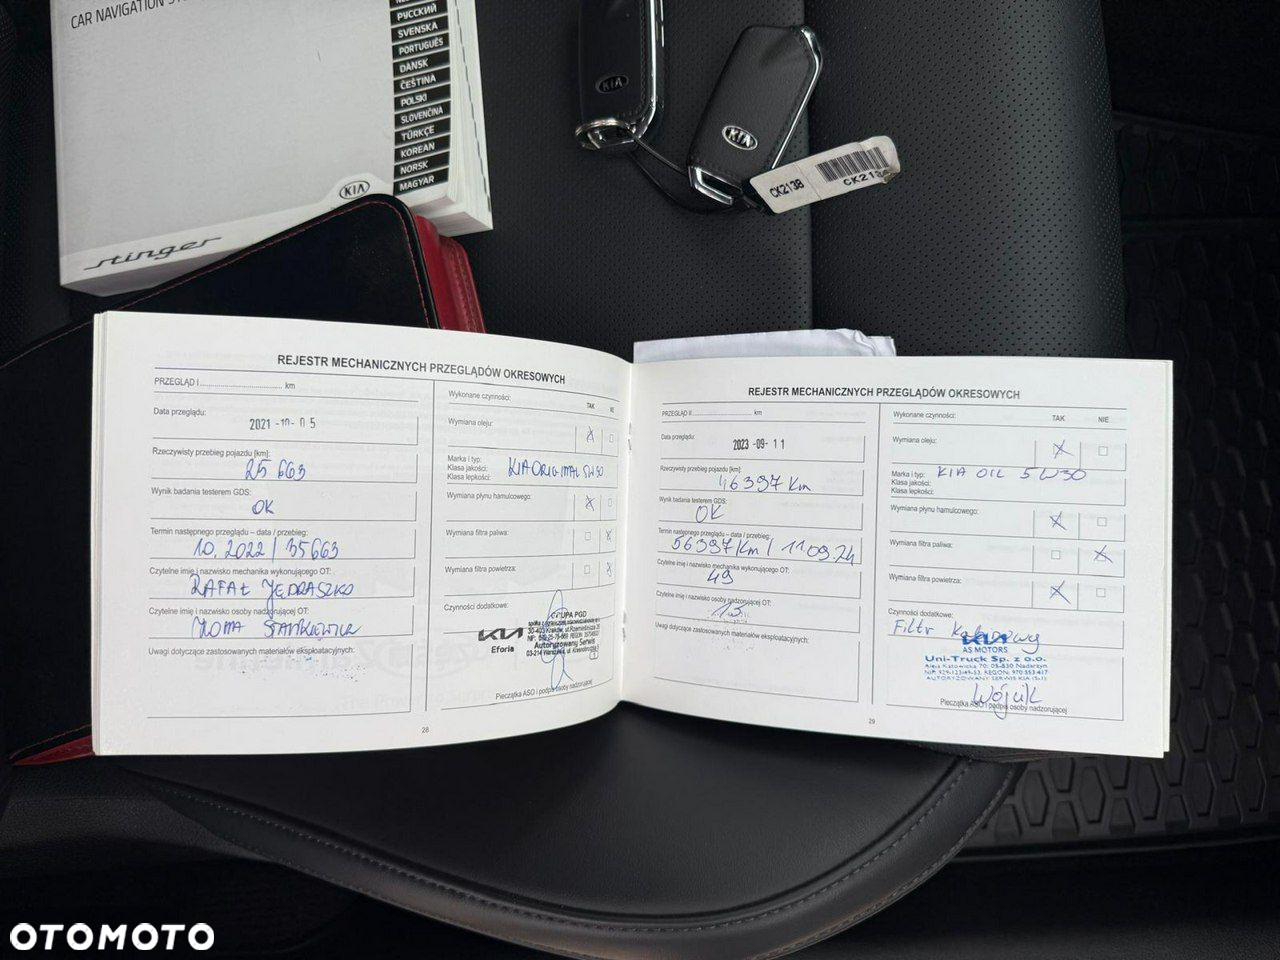 CAR NAVIGATION
РУССКИЙ
SVENSKA
PORTUGUÊS
DANSK
ČEŠTINA
POLSKI
SLOVENČINA
TÜRKÇE
KOREAN
NORSK
MAGYAR
KIA
stinger
KIA
KIA
CK2138
REJESTR MECHANICZNYCH PRZEGLĄDÓW OKRESOWYCH
PRZEGLĄD I ........ km
Data przeglądu:
2021-10-05
Rzeczywisty przebieg pojazdu [km]:
25 663
Wynik badania testerem GDS:
OK
Termin następnego przeglądu – data / przebieg:
10.2022 / 35663
Czytelne imię i nazwisko mechanika wykonującego OT:
RAFAŁ JĘDRASZKO
Czytelne imię i nazwisko osoby nadzorującej OT:
STANKIEWICZ
Uwagi dotyczące zastosowanych materiałów eksploatacyjnych:
Wykonane czynności:
TAK
Wymiana oleju:
X
Marka i typ: KIA ORIGINAŁ 5W30
Klasa jakości:
Klasa lepkości:
Wymiana płynu hamulcowego:
X
Wymiana filtra paliwa:
X
Wymiana filtra powietrza:
X
Czynności dodatkowe:
GRUPA PGD
KIA
Eforia
Autoryzowany Serwis
Pieczątka ASO i podpis osoby nadzorującej
28
REJESTR MECHANICZNYCH PRZEGLĄDÓW OKRESOWYCH
PRZEGLĄD II ........ km
Data przeglądu:
2023-09-11
Rzeczywisty przebieg pojazdu [km]:
46397 Km
Wynik badania testerem GDS:
OK
Termin następnego przeglądu – data / przebieg:
56397 Km / 11.09.24
Czytelne imię i nazwisko mechanika wykonującego OT:
49
Czytelne imię i nazwisko osoby nadzorującej OT:
Uwagi dotyczące zastosowanych materiałów eksploatacyjnych:
Wykonane czynności:
TAK NIE
Wymiana oleju:
X
Marka i typ: KIA OIL 5W30
Klasa jakości:
Klasa lepkości:
Wymiana płynu hamulcowego:
X
Wymiana filtra paliwa:
X
Wymiana filtra powietrza:
X
Czynności dodatkowe:
Filtr Kabinowy
KIA
AS MOTORS
Uni-Truck Sp. z o.o.
Wójcik
Pieczątka ASO i podpis osoby nadzorującej
29
OTOMOTO